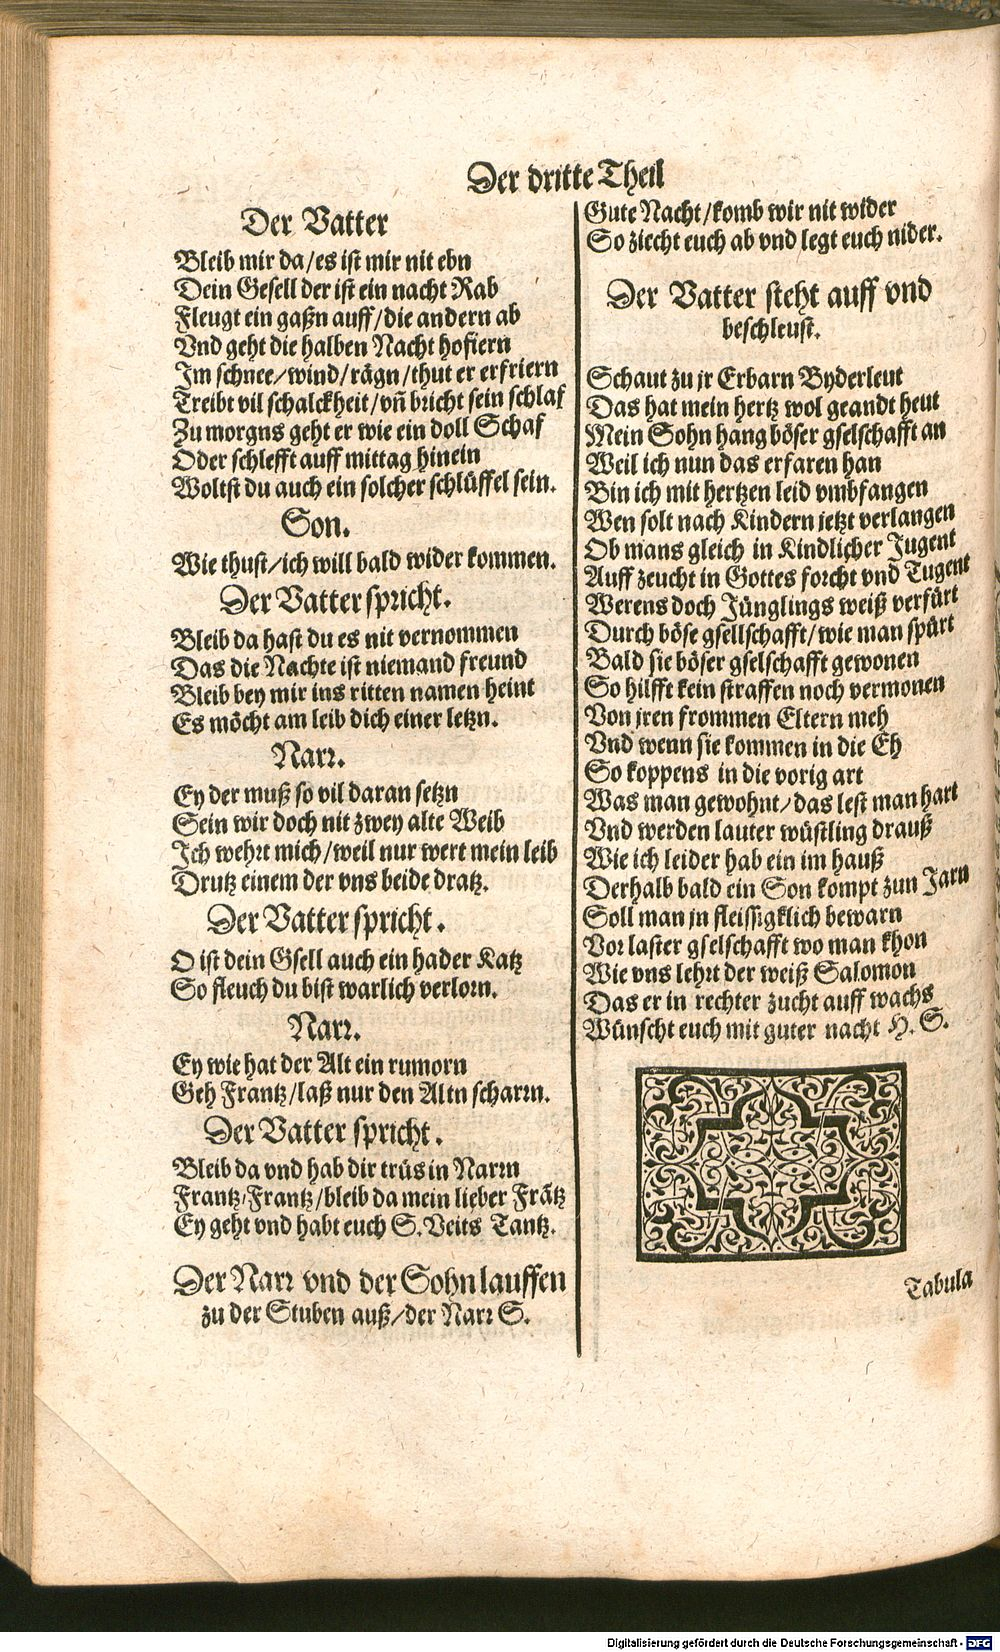 Der dritte Theil
Der Vatter
Bleib mir da/es ist mir nit ebn
Dein Gesell der ist ein nacht Rab
Fleugt ein gaßn auff/die andern ab
Vnd geht die halben Nacht hofiern
Im schnee/wind/rägn/thut er erfriern
Treibt vil schalckheit/vñ bricht sein schlaf
Zu morgns geht er wie ein doll Schaf
Oder schlefft auff mittag hinein
Woltst du auch ein solcher schlüffel sein.
Son.
Wie thust/ich will bald wider kommen.
Der Vatter spricht.
Bleib da hast du es nit vernommen
Das die Nachte ist niemand freund
Bleib bey mir ins ritten namen heint
Es möcht am leib dich einer letzn.
Narr.
Ey der muß so vil daran setzn
Sein wir doch nit zwey alte Weib
Ich wehrt mich/weil nur wert mein leib
Drutz einem der vns beide dratz.
Der Vatter spricht.
O ist dein Gsell auch ein hader Katz
So fleuch du bist warlich verlorn.
Narr.
Ey wie hat der Alt ein rumorn
Geh Frantz/laß nur den Altn scharrn.
Der Vatter spricht.
Bleib da vnd hab dir trüs in Narrn
Frantz/Frantz/bleib da mein lieber Frätz
Ey geht vnd habt euch S. Veits Tantz.
Der Narr vnd der Sohn lauffen
zu der Stuben auß/der Narr S.
Gute Nacht/komb wir nit wider
So ziecht euch ab vnd legt euch nider.
Der Vatter steht auff vnd
beschleust.
Schaut zu jr Erbarn Byderleut
Das hat mein hertz wol geandt heut
Mein Sohn hang böser gselschafft an
Weil ich nun das erfaren han
Bin ich mit hertzen leid vmbfangen
Wen solt nach Kindern jetzt verlangen
Ob mans gleich in Kindlicher Jugent
Auff zeucht in Gottes forcht vnd Tugent
Werens doch Jünglings weiß verfürt
Durch böse gsellschafft/wie man spürt
Bald sie böser gselschafft gewonen
So hilfft kein straffen noch vermonen
Von jren frommen Eltern meh
Vnd wenn sie kommen in die Eh
So koppens in die vorig art
Was man gewohnt/das lest man hart
Vnd werden lauter wüstling drauß
Wie ich leider hab ein im hauß
Derhalb bald ein Son kompt zun Jarn
Soll man jn fleissigklich bewarn
Vor laster gselschafft wo man khon
Wie vns lehrt der weiß Salomon
Das er in rechter zucht auff wachs
Wünscht euch mit guter nacht H. S.
Tabula
Digitalisierung gefördert durch die Deutsche Forschungsgemeinschaft - DFG